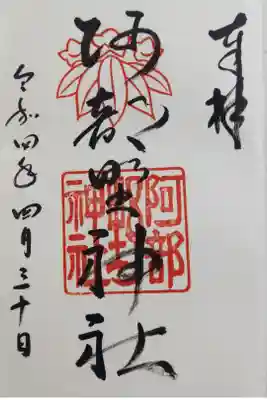 奉拝
阿部野神社
阿部野神社
令和四年四月三十日